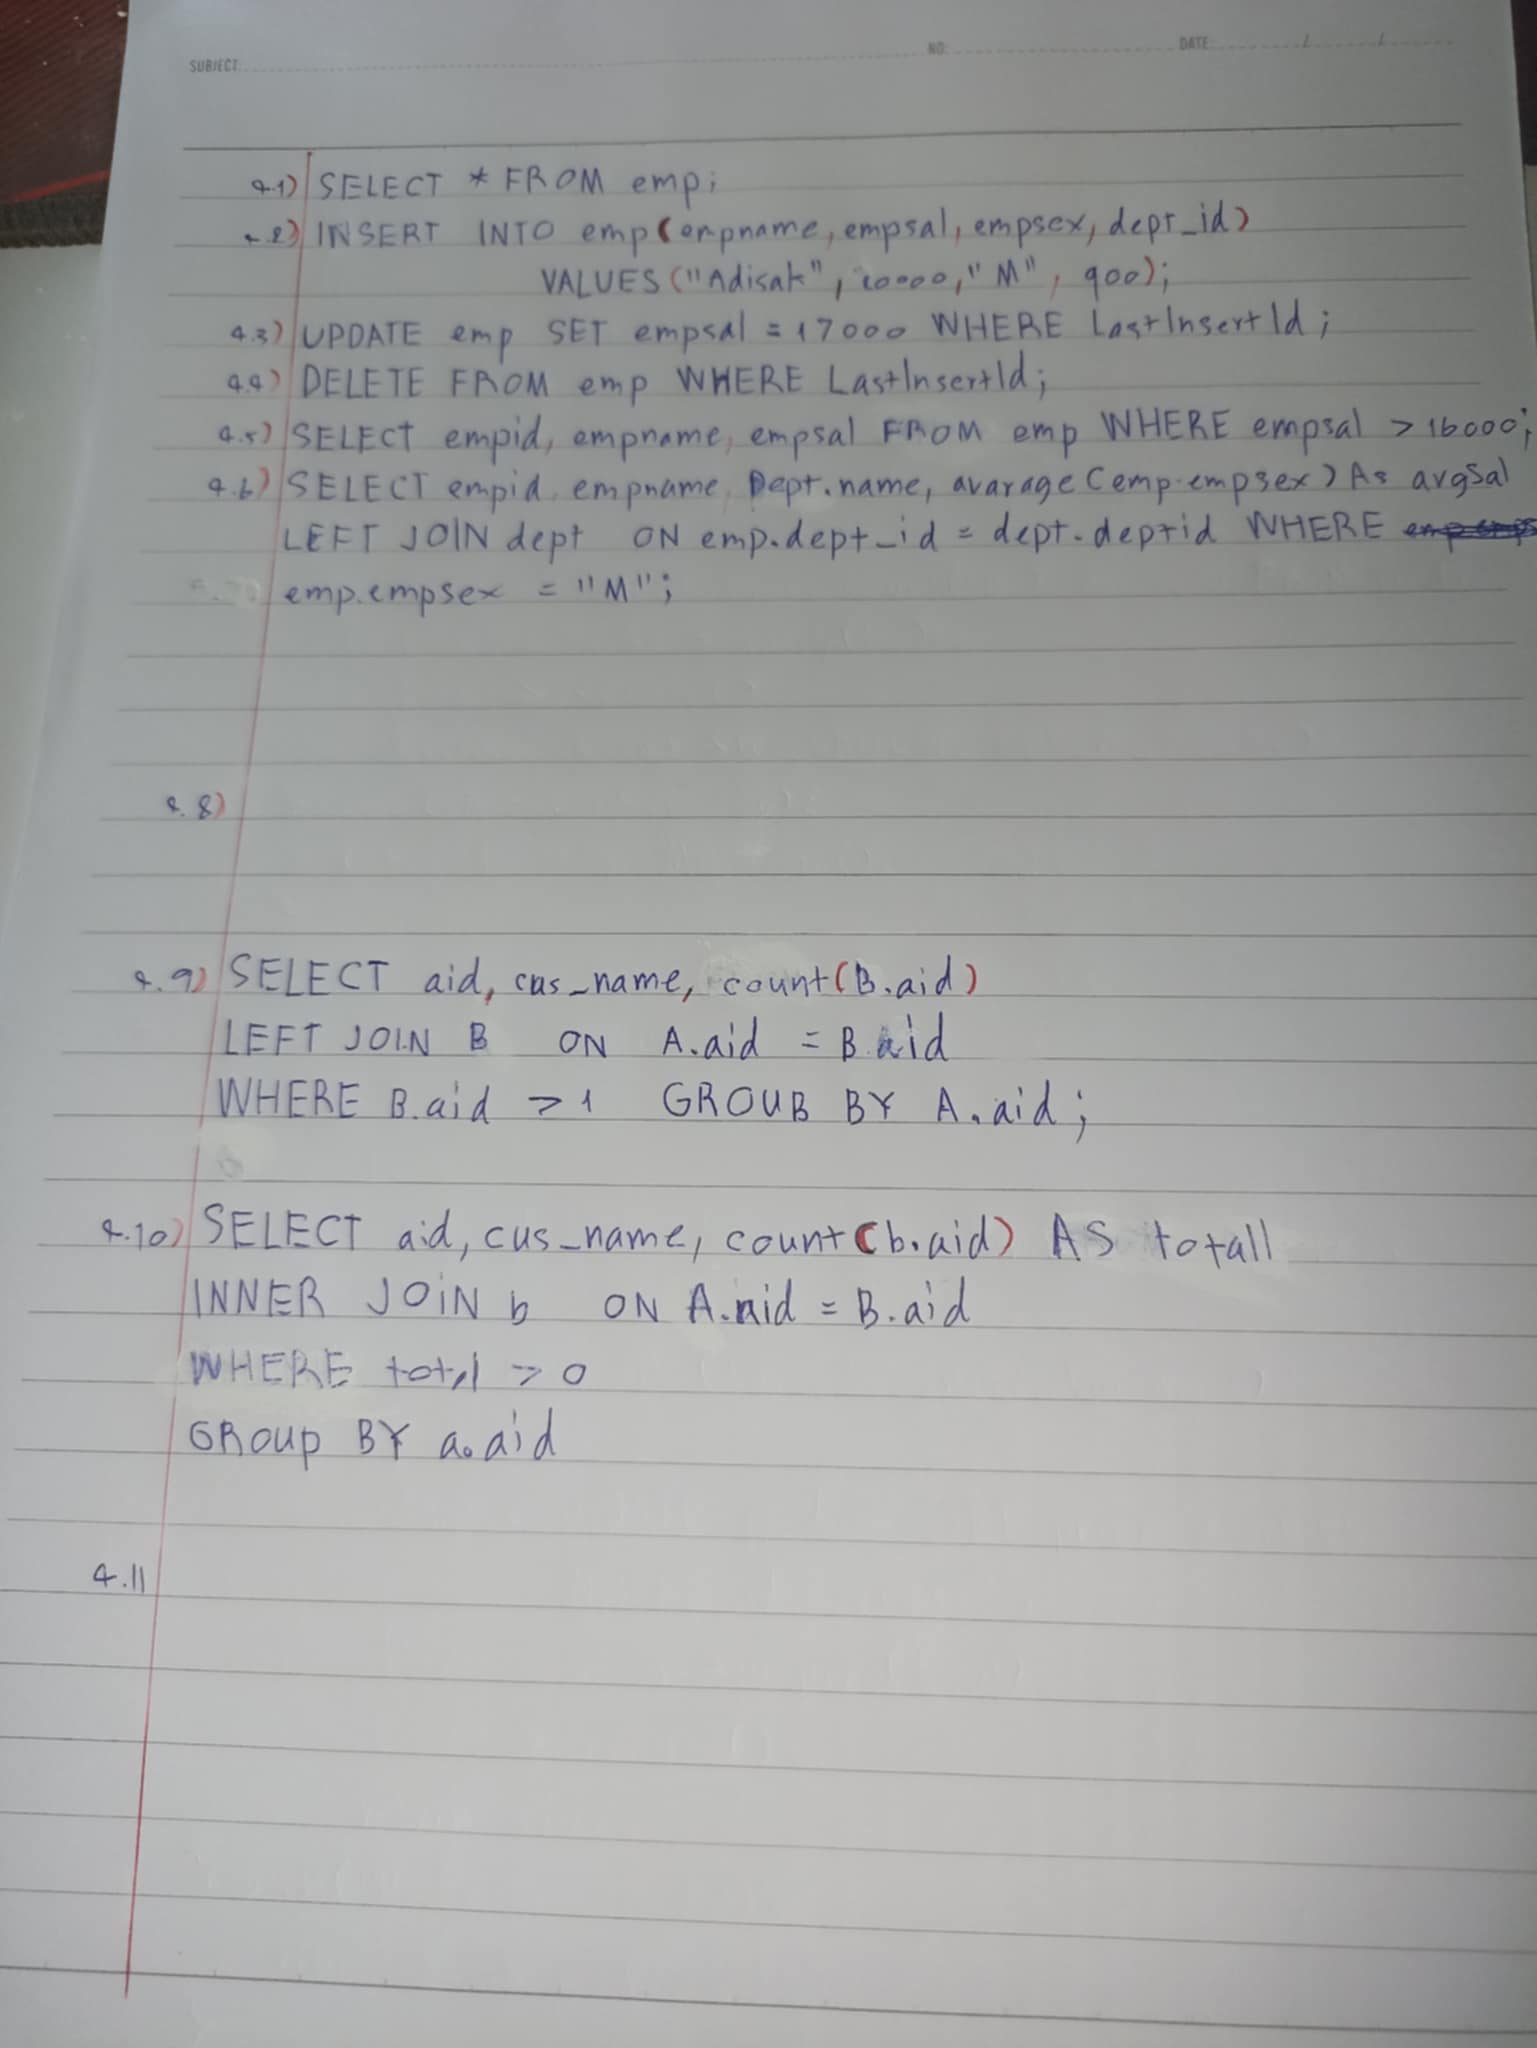 SUBJECT: NO: DATE: / /
4.1) SELECT * FROM emp;
4.2) INSERT INTO emp(empname, empsal, empsex, dept_id)
VALUES ("Adisak", 10000, "M", 900);
4.3) UPDATE emp SET empsal = 17000 WHERE LastInsertId;
4.4) DELETE FROM emp WHERE LastInsertId;
4.5) SELECT empid, empname, empsal FROM emp WHERE empsal > 16000;
4.6) SELECT empid, empname, Dept.name, avarage(emp.empsex) As avgSal
LEFT JOIN dept ON emp.dept_id = dept.deptid WHERE
emp.empsex = "M";
4.8)
4.9) SELECT aid, cus_name, count(B.aid)
LEFT JOIN B ON A.aid = B.aid
WHERE B.aid > 1 GROUB BY A.aid;
4.10) SELECT aid, cus_name, count(b.aid) AS totall
INNER JOIN b ON A.aid = B.aid
WHERE total > 0
GRoup BY a.aid
4.11